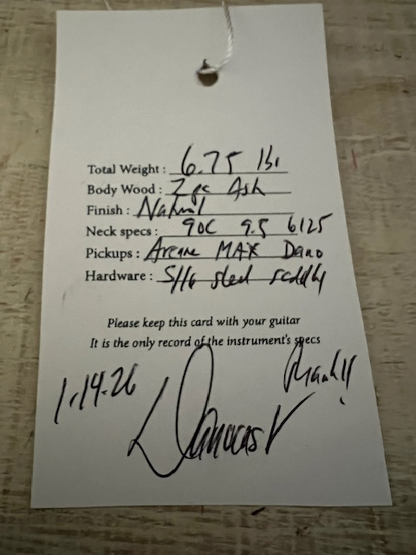 Total Weight : 6.75 lbs
Body Wood : 2 pc Ash
Finish : Natural
Neck specs : 90C 9.5 6125
Pickups : Arcane MAX Dano
Hardware : S/H6 steel saddles
Please keep this card with your guitar
It is the only record of the instrument's specs
1-14-26
Thank!!